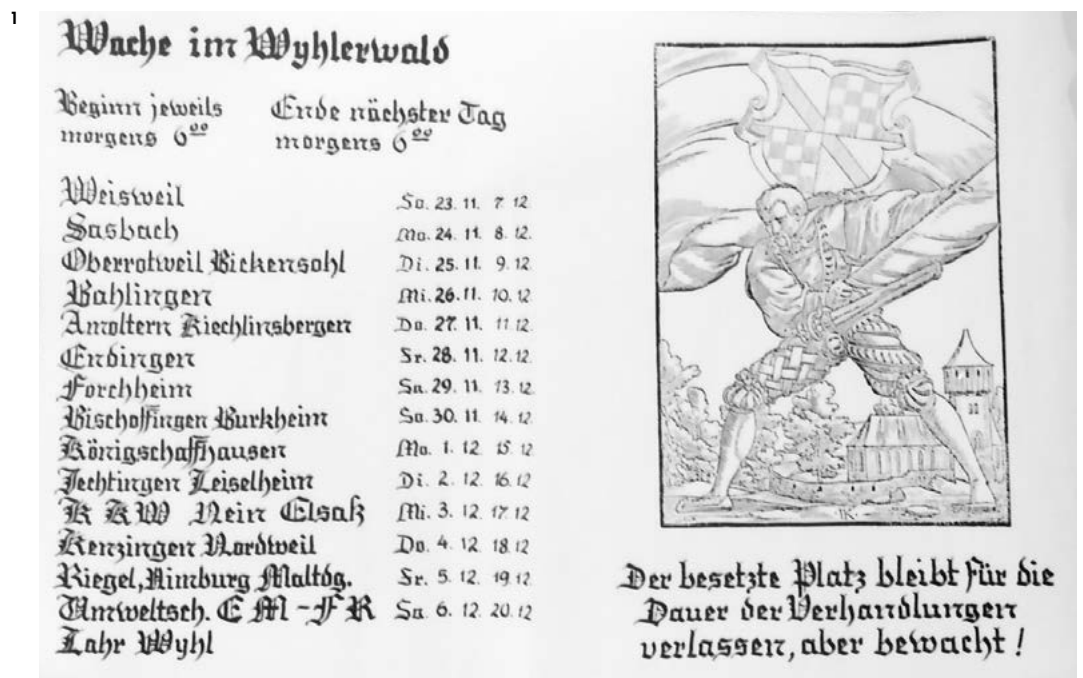 1
Wache im Wyhlerwald
Beginn jeweils Ende nächster Tag
morgens 6⁰⁰ morgens 6⁰⁰
Weisweil So. 23. 11. 7. 12
Sasbach Mo. 24. 11. 8. 12.
Oberrotweil Bickensohl Di. 25. 11. 9. 12.
Bahlingen Mi. 26. 11. 10. 12.
Amoltern Kiechlinsbergen Do. 27. 11. 11. 12.
Endingen Fr. 28. 11. 12. 12.
Forchheim Sa. 29. 11. 13. 12.
Bischoffingen Burkheim So. 30. 11. 14. 12.
Königschaffhausen Mo. 1. 12 15. 12
Jechtingen Leiselheim Di. 2. 12. 16. 12
K K W Nein Elsaß Mi. 3. 12. 17. 12
Kenzingen Nordweil Do. 4. 12. 18. 12
Riegel, Nimburg Maltdg. Fr. 5. 12. 19. 12
Umweltsch. E M - F R Sa. 6. 12. 20. 12
Lahr Wyhl
Der besetzte Platz bleibt für die
Dauer der Verhandlungen
verlassen, aber bewacht!